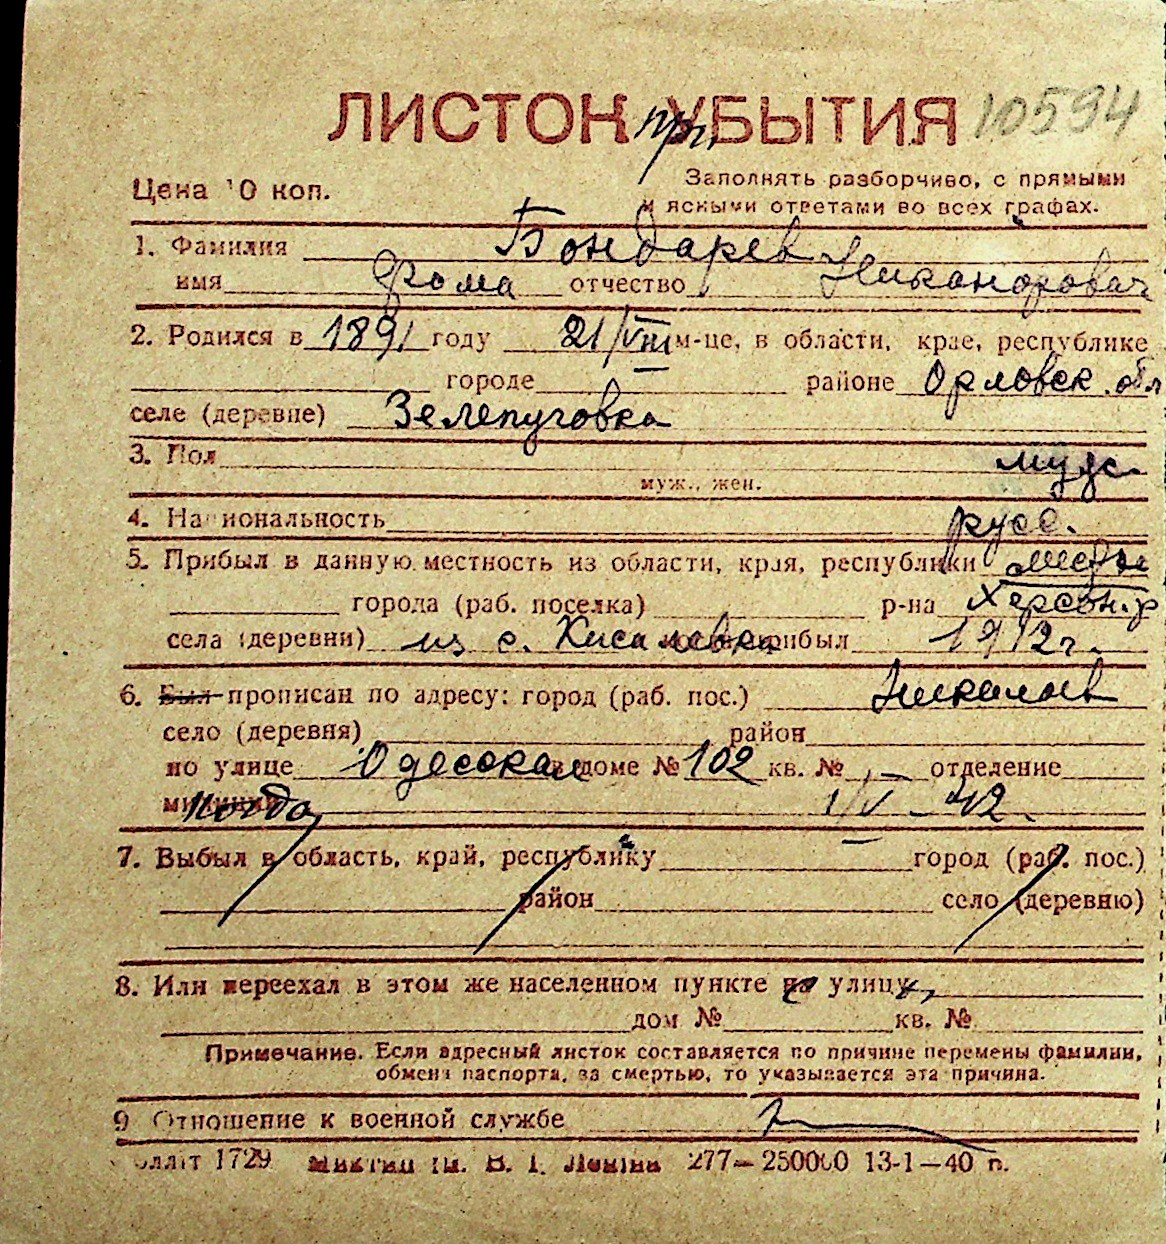 ЛИСТОК при УБЫТИЯ 10594
Цена 10 коп.
Заполнять разборчиво, с прямыми
и ясными ответами во всех графах.
1. Фамилия Бондарев
имя Фома отчество Никанорович
2. Родился в 1891 году 21/VIII м-це, в области, крае, республике
городе районе Орловск. обл
селе (деревне) Зелепуговка
3. Пол муж.
муж., жен.
4. Национальность русс.
5. Прибыл в данную местность из области, края, республики
города (раб. поселка) р-на Херсон. р
села (деревни) из с. Киселевка прибыл 1912 г.
6. Был прописан по адресу: город (раб. пос.) Николаев
село (деревня) район
по улице Одесская доме № 102 кв. № — отделение
милиции Когда 1/V — 42.
7. Выбыл в область, край, республику город (раб. пос.)
район село (деревню)
8. Или переехал в этом же населенном пункте на улицу
дом № кв. №
Примечание. Если адресный листок составляется по причине перемены фамилии,
обмена паспорта, за смертью, то указывается эта причина.
9 Отношение к военной службе
1729 277—250000 13-1—40 п.